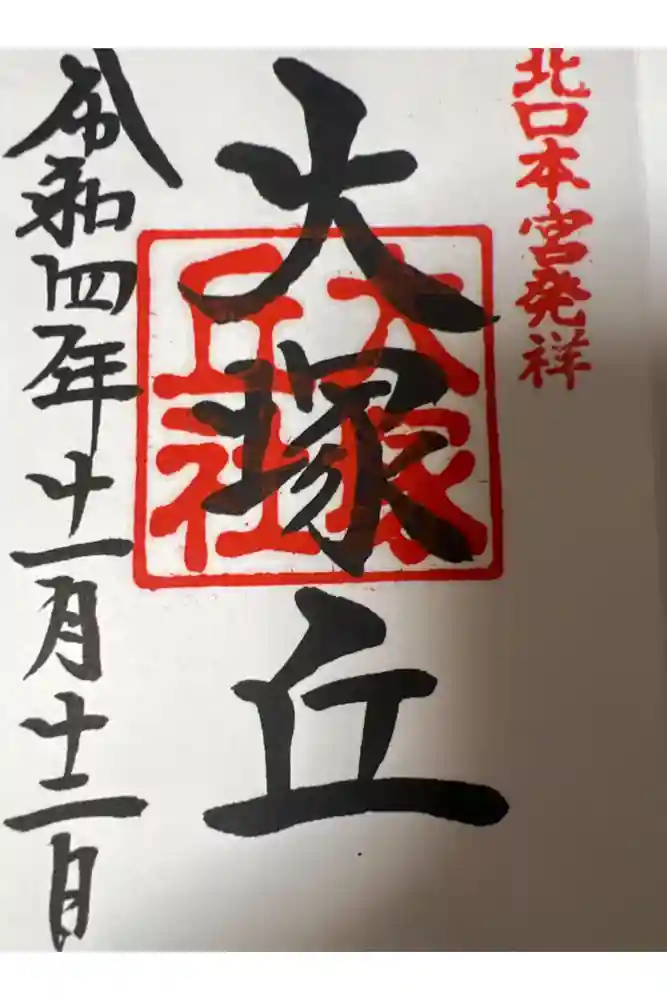 北口本宮発祥
大塚丘
大塚
丘社
令和四年十一月十二日